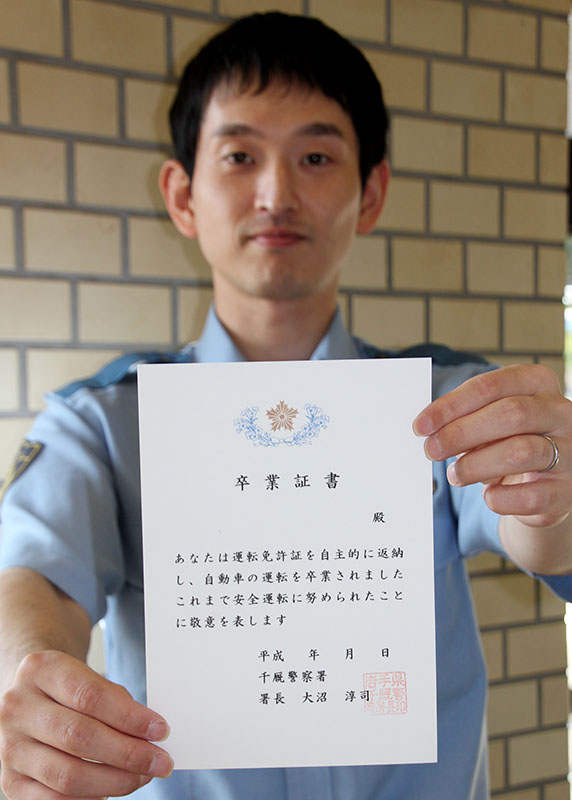 卒業証書
殿
あなたは運転免許証を自主的に返納
し、自動車の運転を卒業されました
これまで安全運転に努められたこと
に敬意を表します
平成　年　月　日
千厩警察署
署長　大沼　淳司